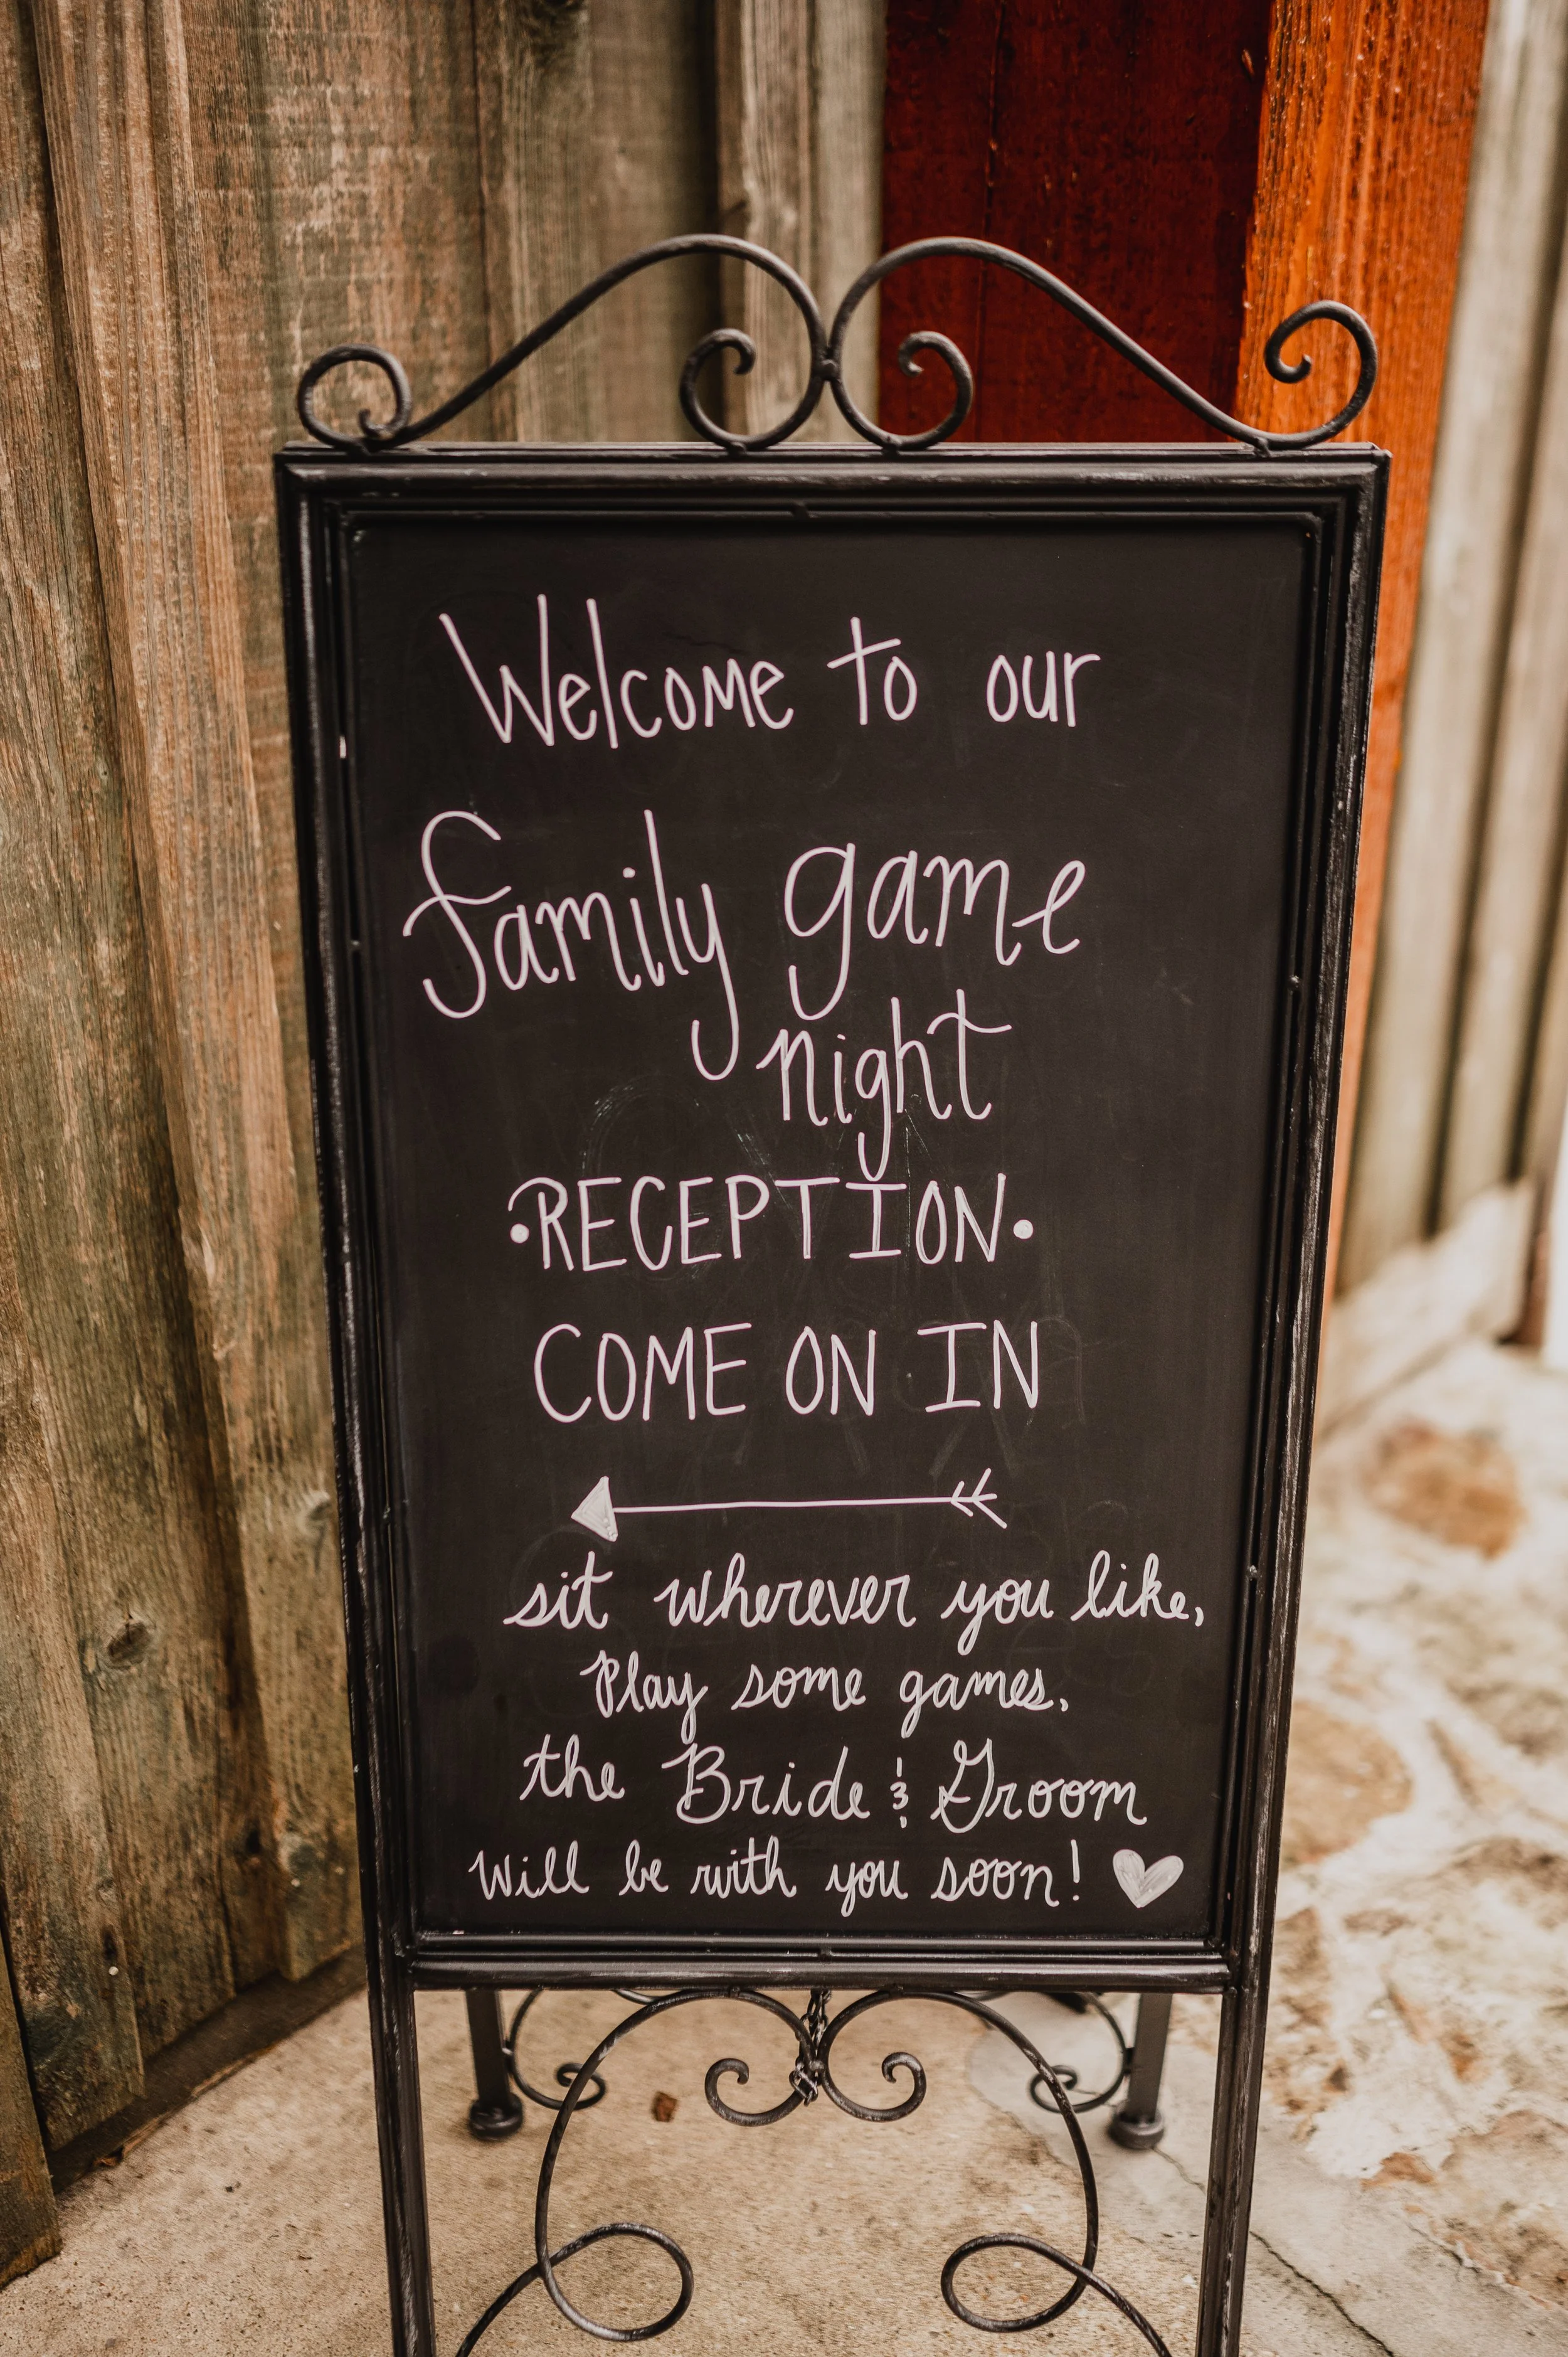 Welcome to our
family game
night
•RECEPTION•
COME ON IN
sit wherever you like,
Play some games,
the Bride & Groom
will be with you soon!